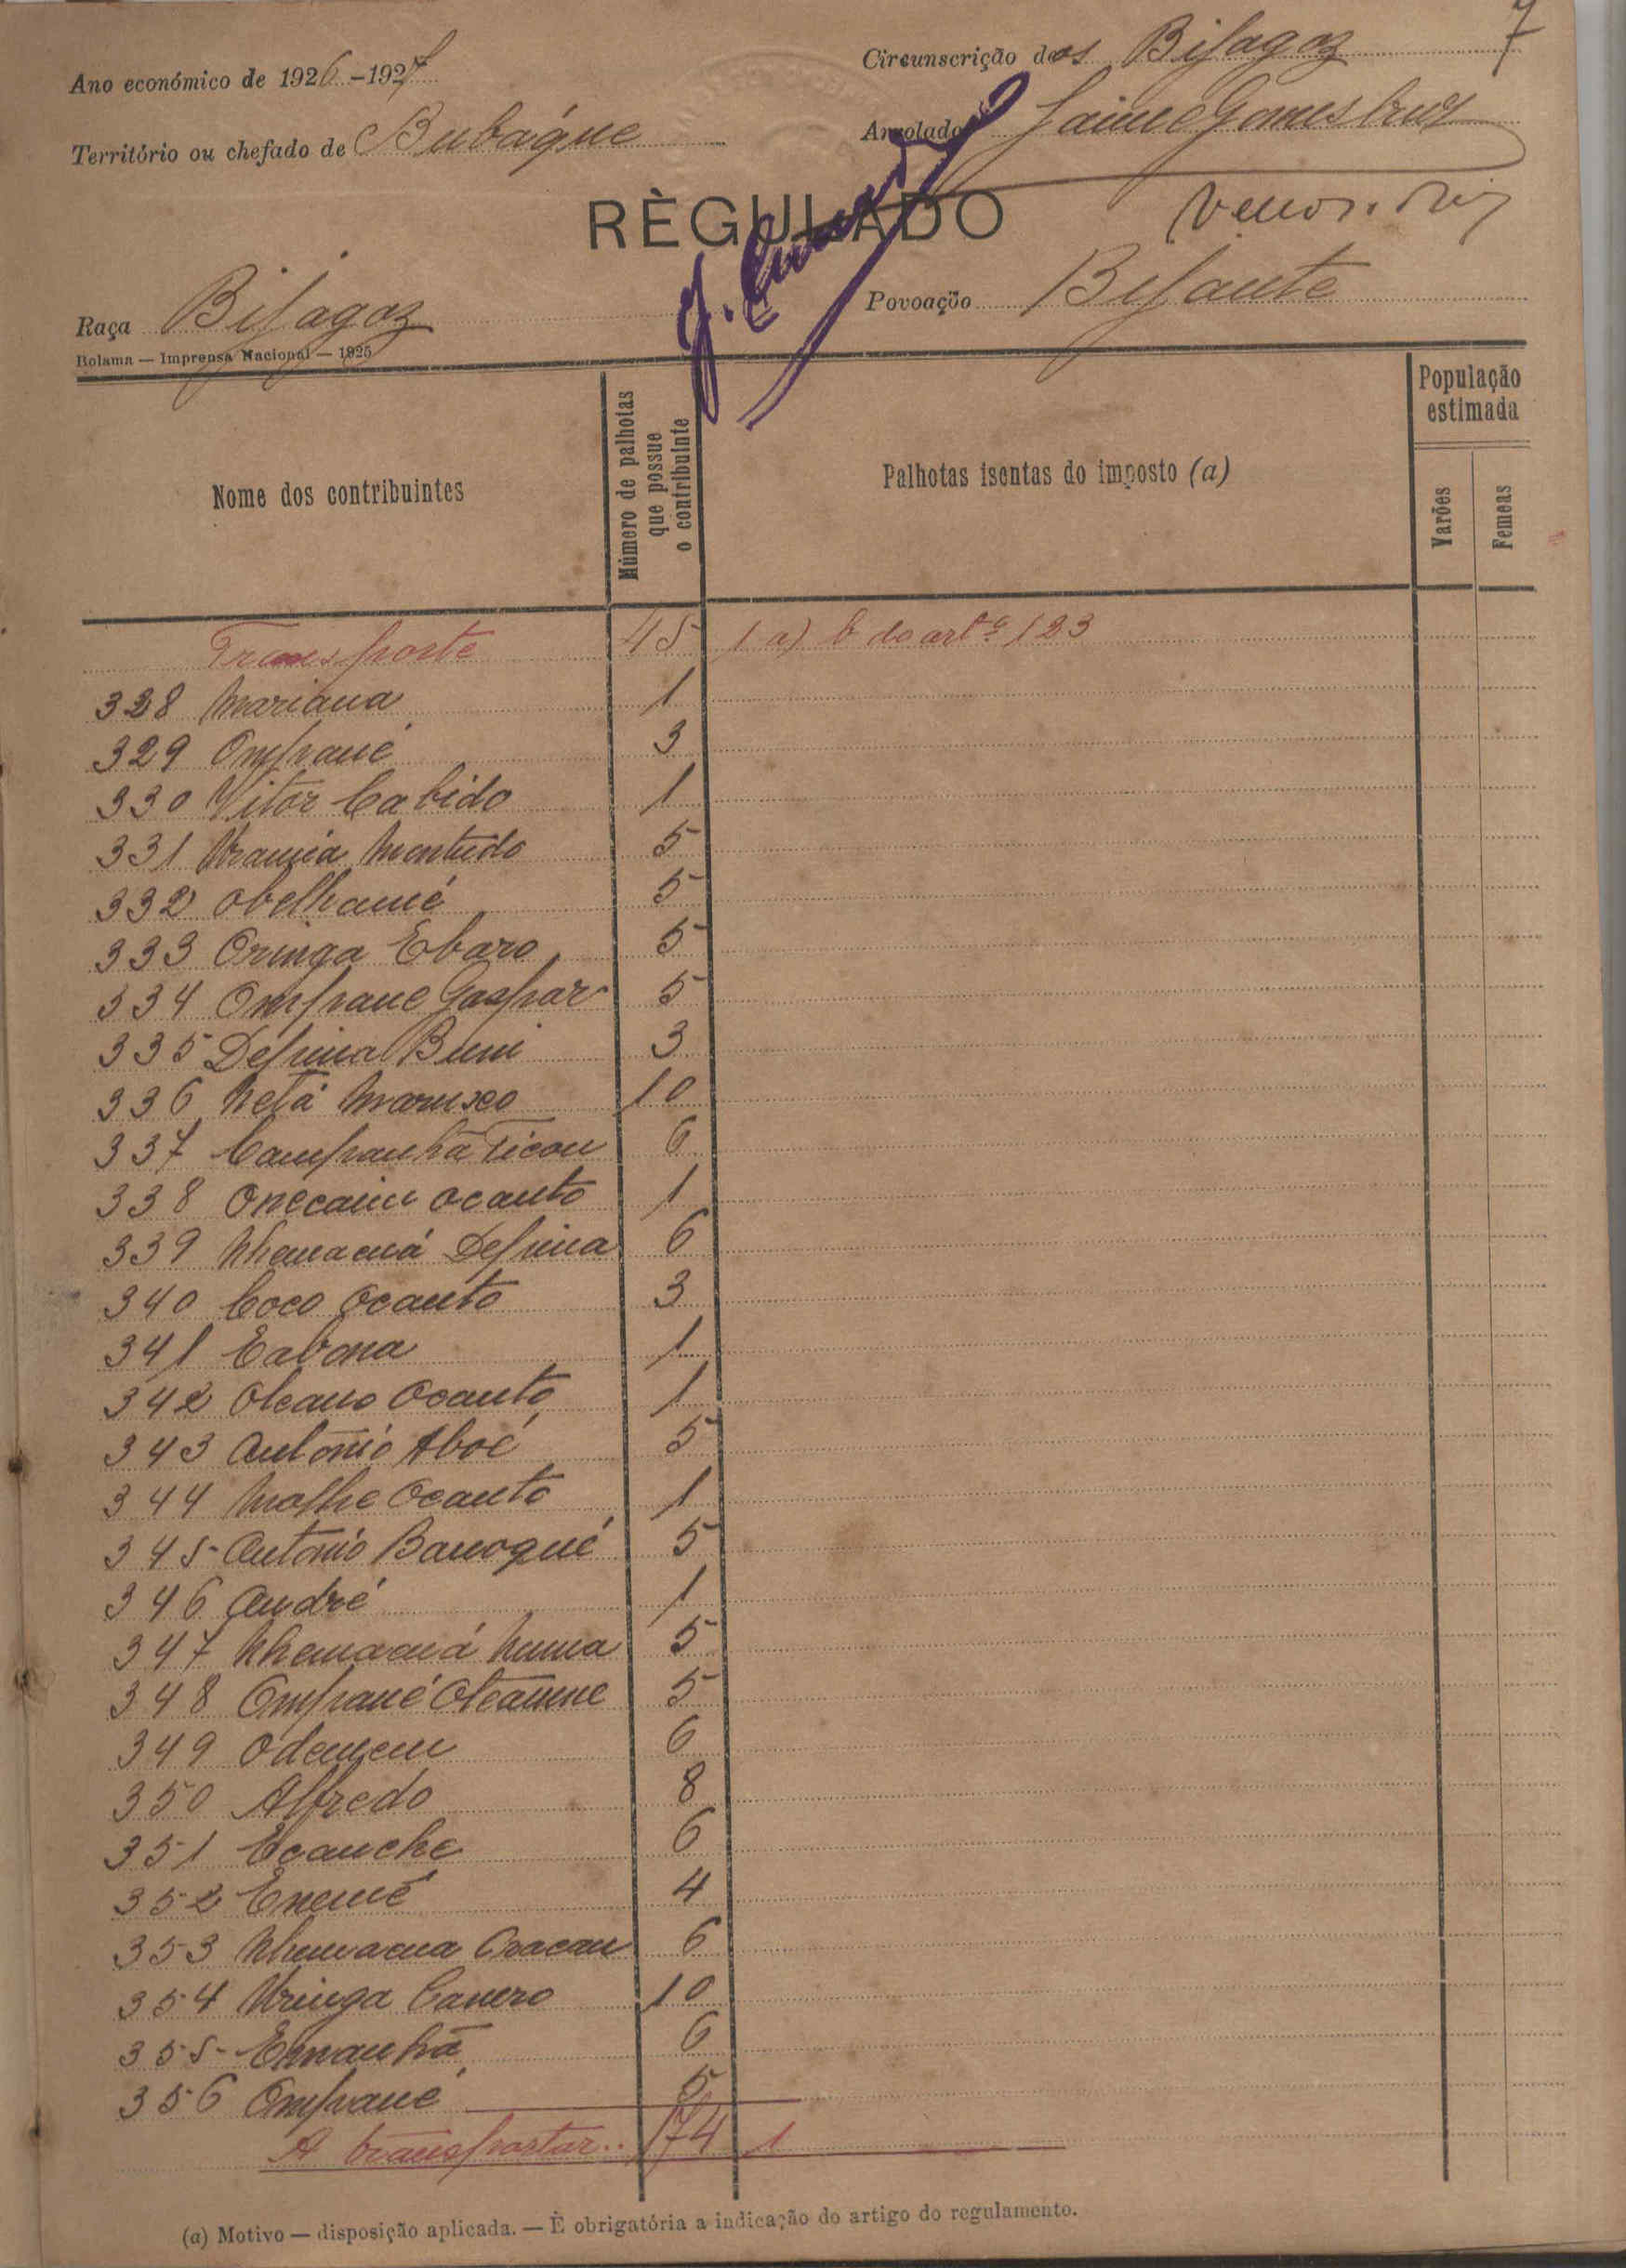 7
Ano económico de 1926-1927 Circunscrição dos Bijagoz
Território ou chefado de Bubáque Arrolador Jaime Gomes
RÈGULADO
Raça Bijagoz Povoação Bijante
Bolama — Imprensa Nacional — 1925
Nome dos contribuintes
Número de palhotas que possue o contribuinte
Palhotas isentas do imposto (a)
População estimada
Varões
Femeas
Transporte 45 1 a) b do artº 123
328 Mariana 1
329 Ompané 3
330 Vitor Cabido 1
331 Mentudo 5
332 Obelhamé 5
333 Oringa Ebaro 5
334 Ompane Gaspar 5
335 Defuina Buni 3
336 Netá 10
337 Campanhã Ticou 6
338 Onecaim Ocanto 1
339 Nhamacuá Defuina 6
340 Coco Ocanto 3
341 Cabona 1
342 Oleano Ocanto 1
343 António Aboé 5
344 Molhe Ocanto 1
345 António Banoqué 5
346 André 1
347 Nhamacuá Numa 5
348 Ompané 5
349 Odemem 6
350 Alfredo 8
351 Ecanche 6
352 Enemé 4
353 6
354 Uringa Canero 10
355 Ernanhã 6
356 Ompané 5
A transportar.. 174 1
(a) Motivo — disposição aplicada. — È obrigatória a indicação do artigo do regulamento.